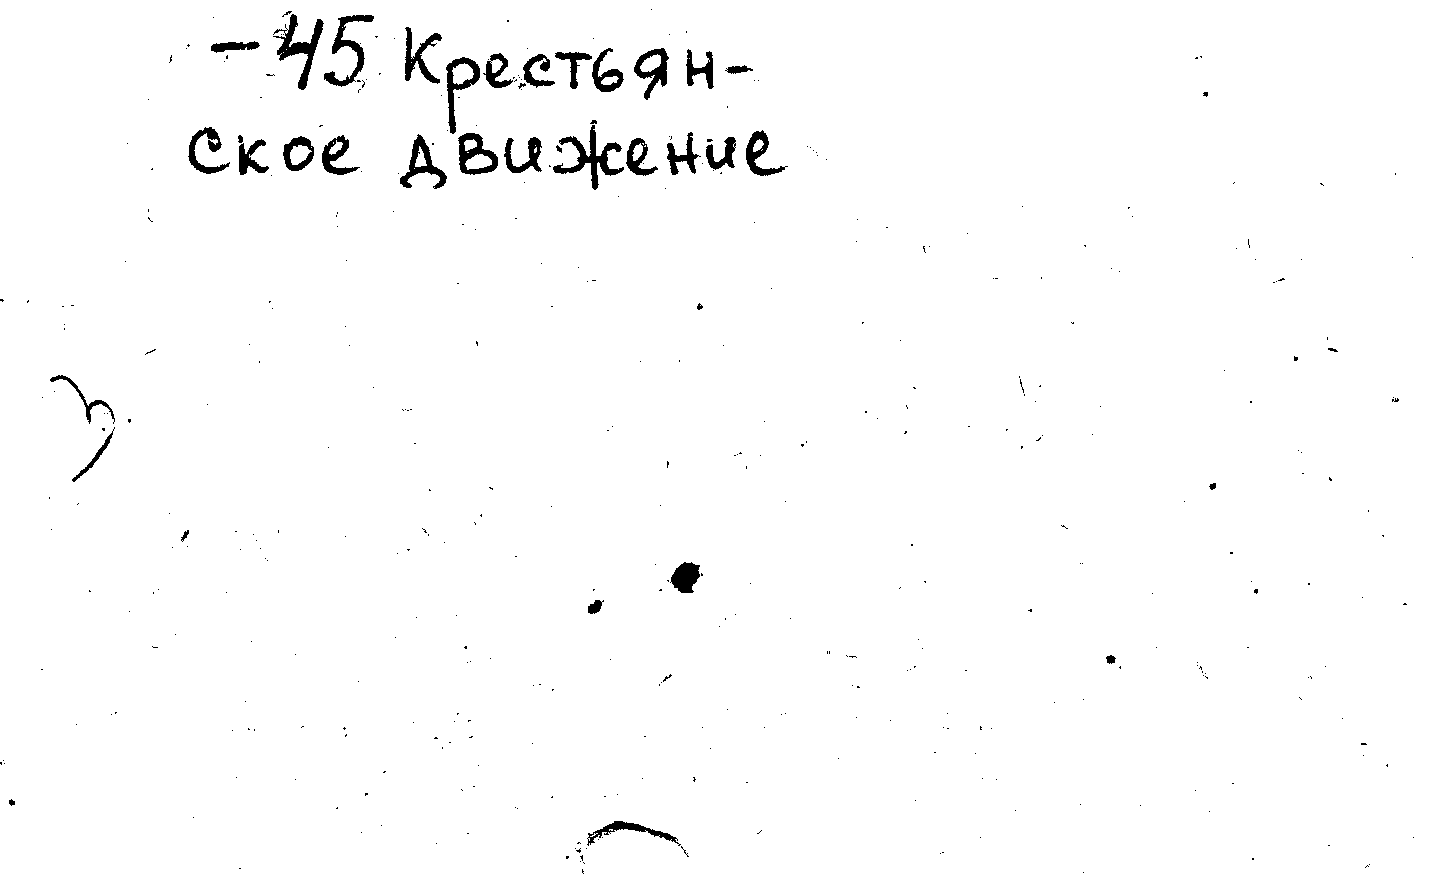 -45 Крестьян-
ское движение